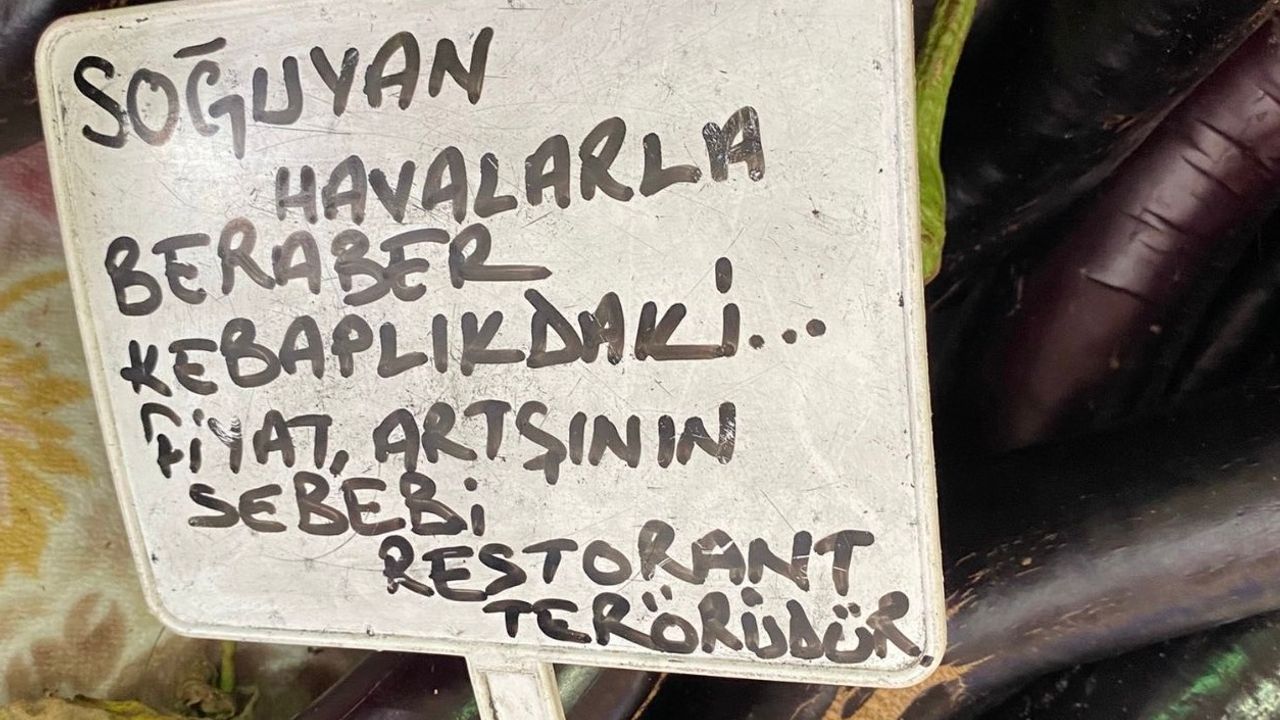 SOĞUYAN
HAVALARLA
BERABER
KEBAPLIKDAKİ...
FİYAT, ARTŞININ
SEBEBİ
RESTORANT
TERÖRÜDÜR.